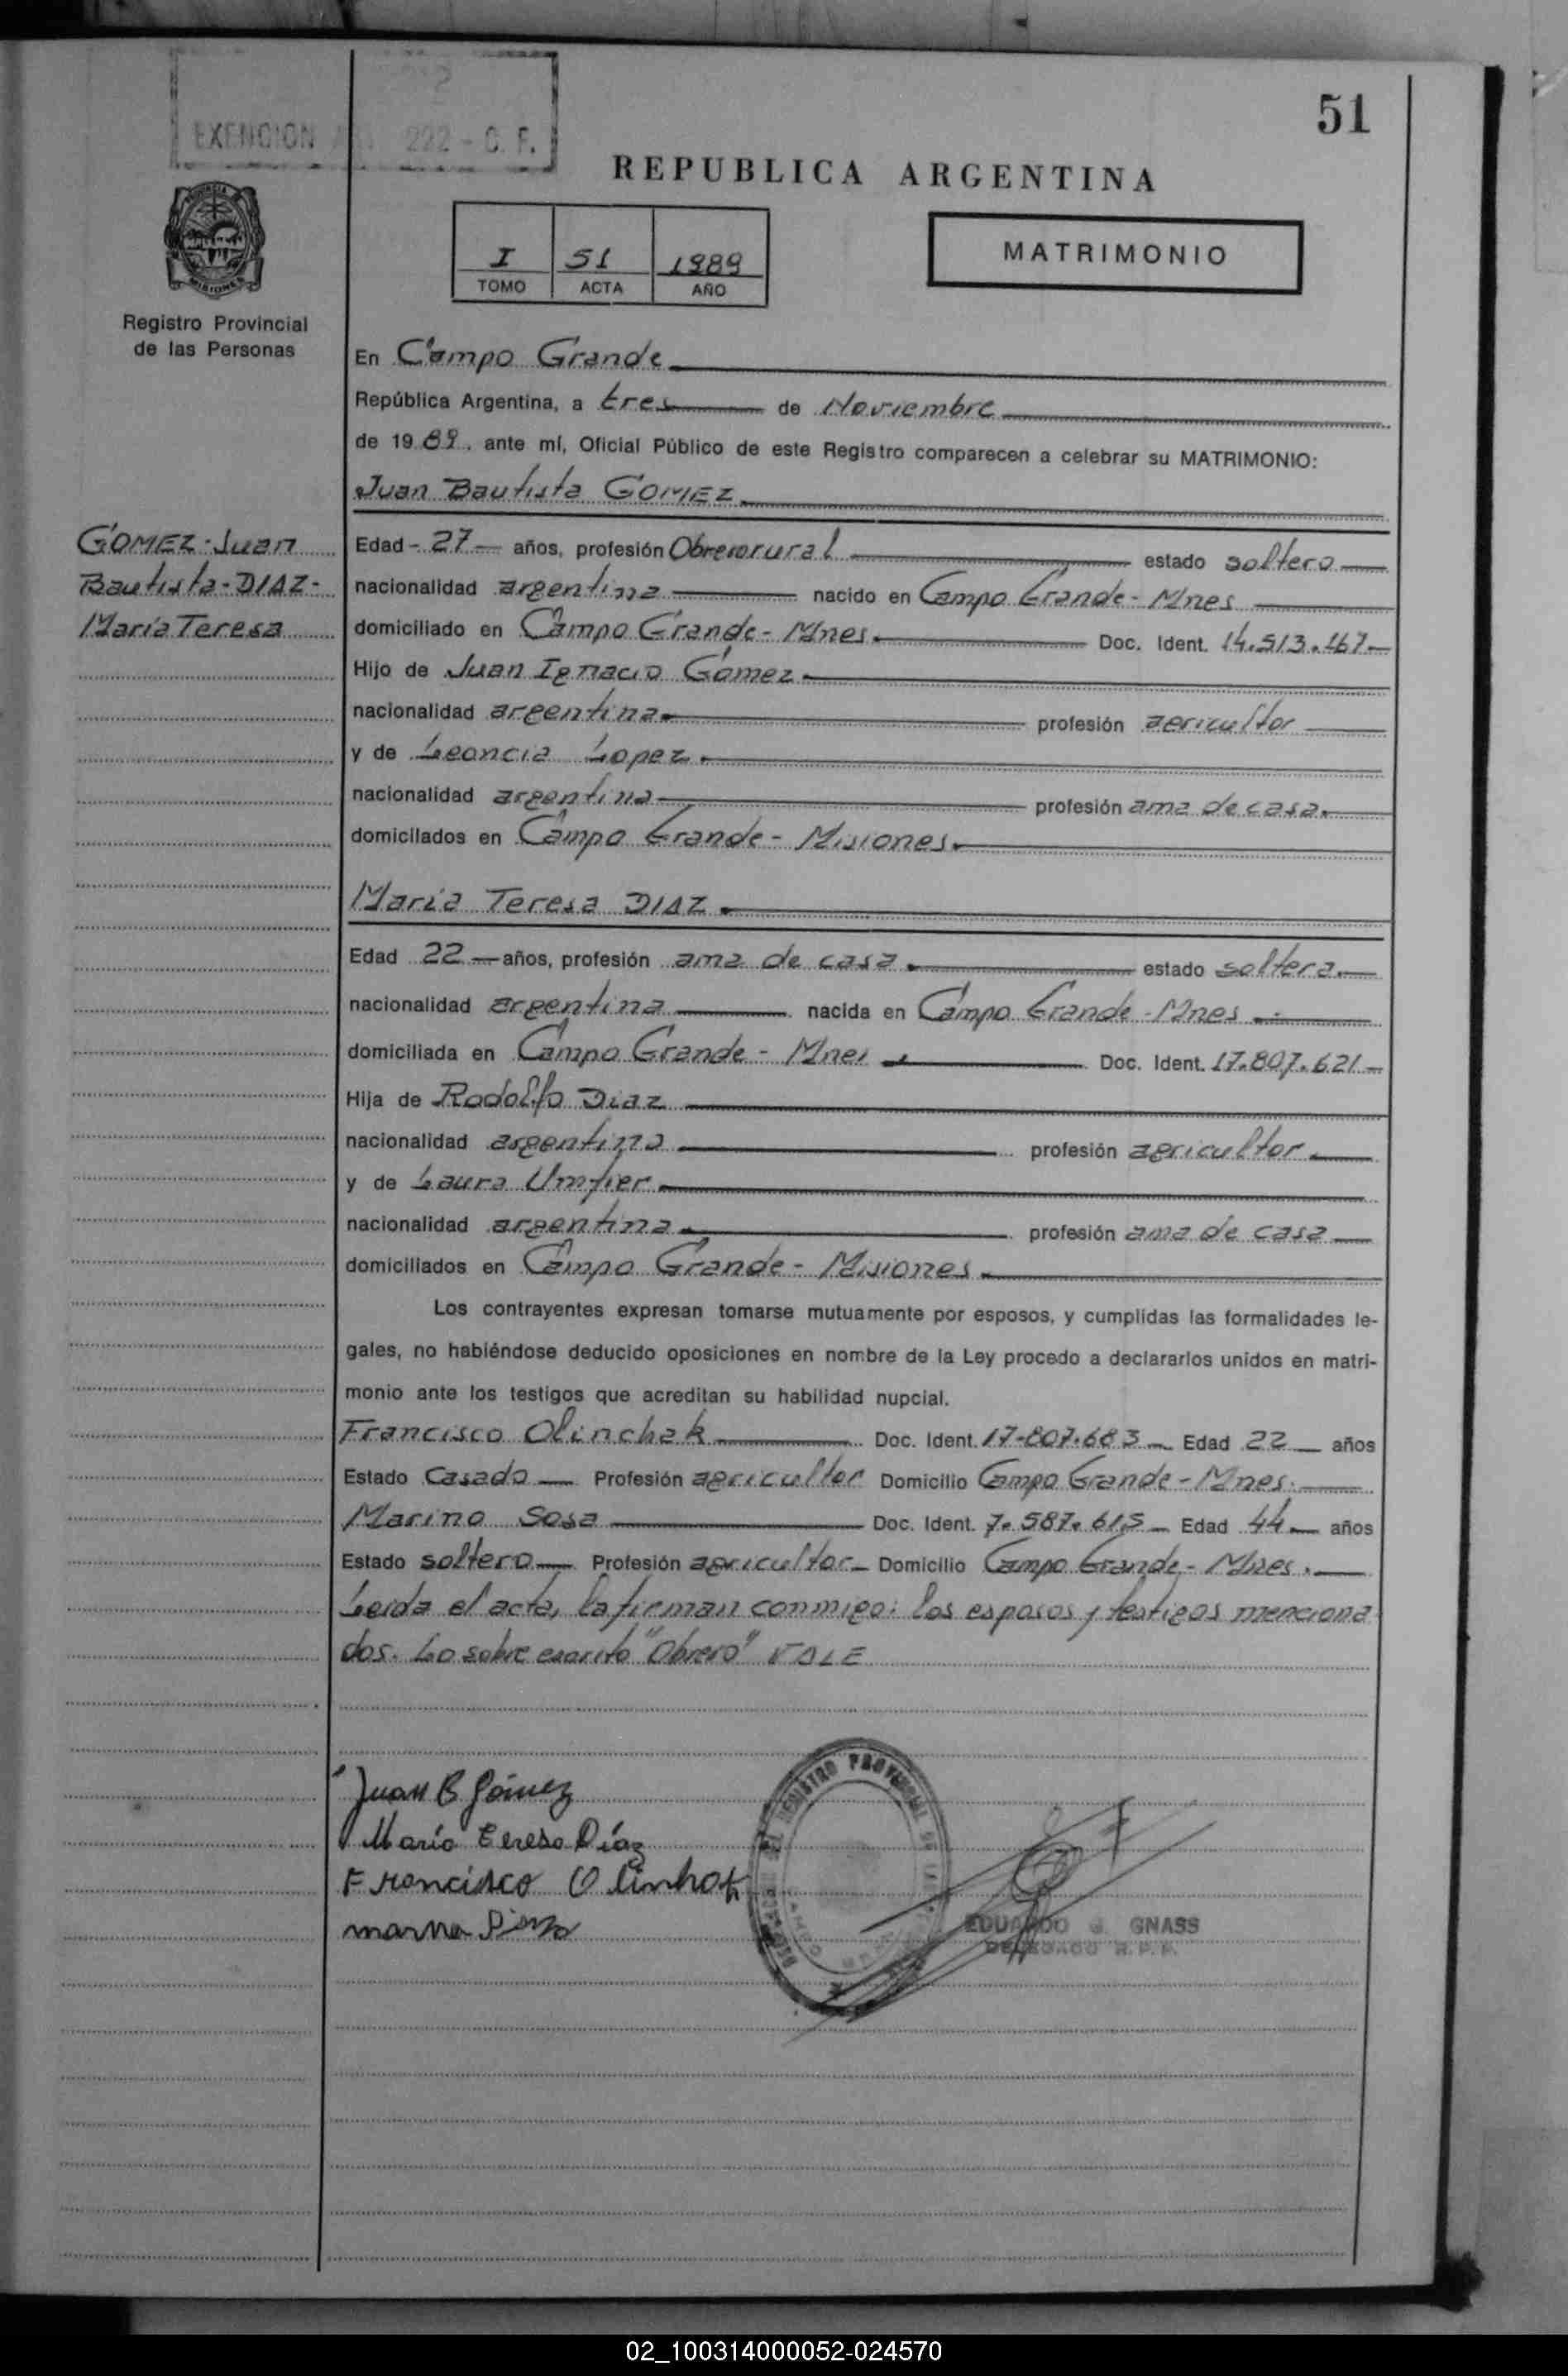 51
EXENCION 222 - C. F.
REPUBLICA ARGENTINA
I 51 1989
TOMO ACTA AÑO
MATRIMONIO
Registro Provincial
de las Personas
En Campo Grande
República Argentina, a tres de Noviembre
de 1989, ante mí, Oficial Público de este Registro comparecen a celebrar su MATRIMONIO:
Juan Bautista GOMEZ
GOMEZ-Juan
Bautista-DIAZ-
María Teresa
Edad - 27 - años, profesión Obrero rural estado soltero
nacionalidad argentina nacido en Campo Grande - Mnes
domiciliado en Campo Grande - Mnes. Doc. Ident. 14.513.167
Hijo de Juan Ignacio Gómez
nacionalidad argentina profesión agricultor
y de Leoncia Lopez
nacionalidad argentina profesión ama de casa.
domicilados en Campo Grande - Misiones.
María Teresa DIAZ
Edad 22 años, profesión ama de casa estado soltera
nacionalidad argentina nacida en Campo Grande - Mnes
domiciliada en Campo Grande - Mnes Doc. Ident. 17.807.621
Hija de Rodolfo Diaz
nacionalidad argentina profesión agricultor
y de Laura
nacionalidad argentina profesión ama de casa
domiciliados en Campo Grande - Misiones
Los contrayentes expresan tomarse mutuamente por esposos, y cumplidas las formalidades le-
gales, no habiéndose deducido oposiciones en nombre de la Ley procedo a declararlos unidos en matri-
monio ante los testigos que acreditan su habilidad nupcial.
Francisco Olinchak Doc. Ident. 17.807.683 Edad 22 años
Estado Casado Profesión agricultor Domicilio Campo Grande - Mnes.
Marino Sosa Doc. Ident. 7.587.615 Edad 44 años
Estado soltero Profesión agricultor Domicilio Campo Grande - Mnes.
Leída el acta, la firman conmigo: los esposos y testigos menciona
dos. Lo sobre escrito "Obrero" VALE
Juan B Gómez
María Teresa Díaz
Francisco
EDUARDO J. GNASS
DELEGADO R.P.P.
02_100314000052-024570